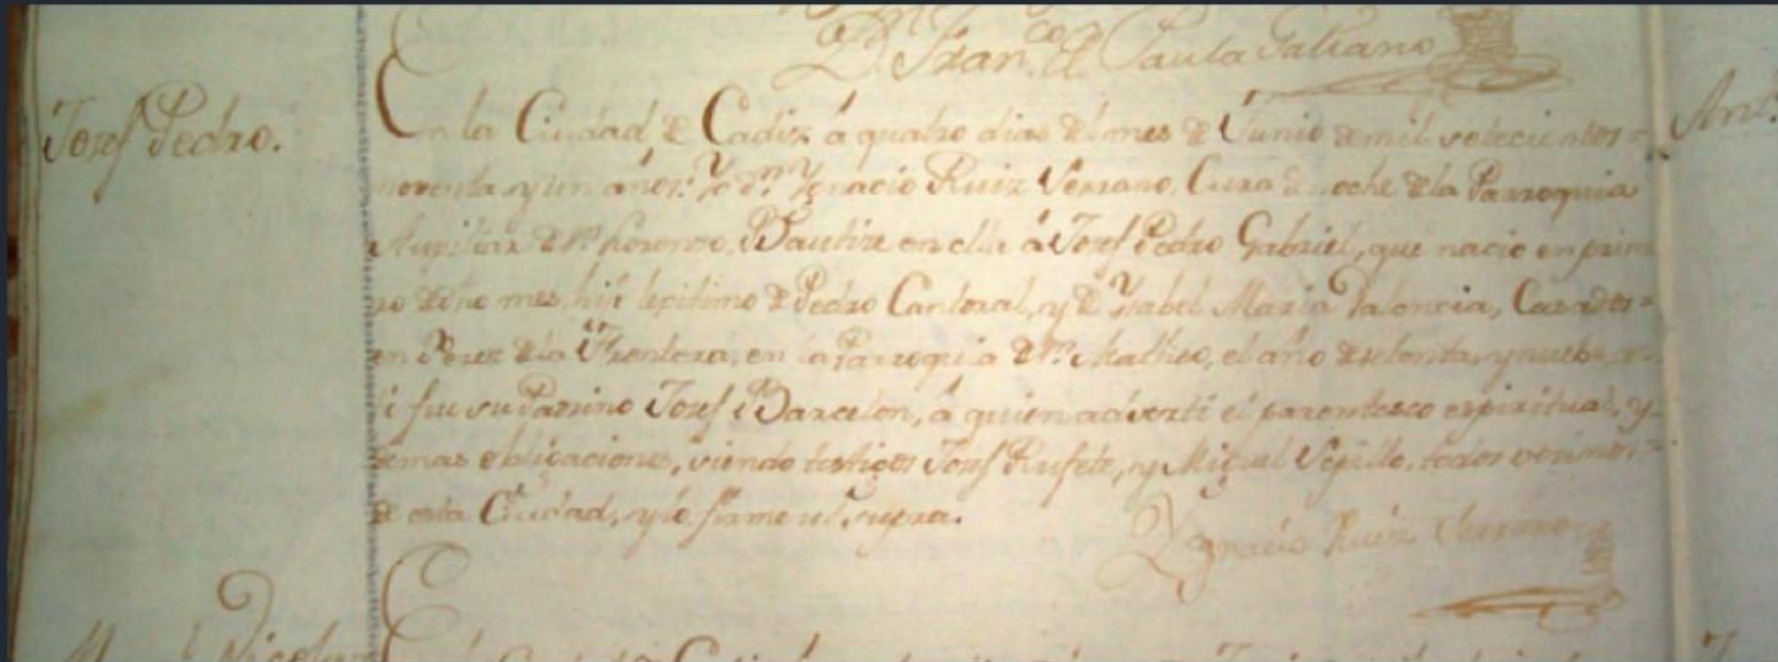 D. Fran.co de Paula Galiano
Josef Pedro.
En la Ciudad de Cadiz á quatro dias del mes de Junio de mil setecientos =
noventa, y un años: Yo dn. Ygnacio Ruiz Serrano, Cura de noche de la Parroquia
Auxiliar de Sn. Lorenzo, Bautize en ella á Josef Pedro Gabriel, que nacio en prim
ro de dho mes, hijo lexitimo de Pedro Cantoral, y de Ysabel Maria Valencia, Casados =
en Xerez de la Frontera, en la Parroquia de Sn. Matheo, el año de setenta, y nueve
fue su Padrino Josef Barcelon, á quien adverti el parentesco espiritual, y
demas obligaciones, siendo testigos Josef Rufete, y Miguel todos vecinos =
de esta Ciudad, y lo firme ut supra.
Ygnacio Ruiz Serrano
Ant.
Nicolas